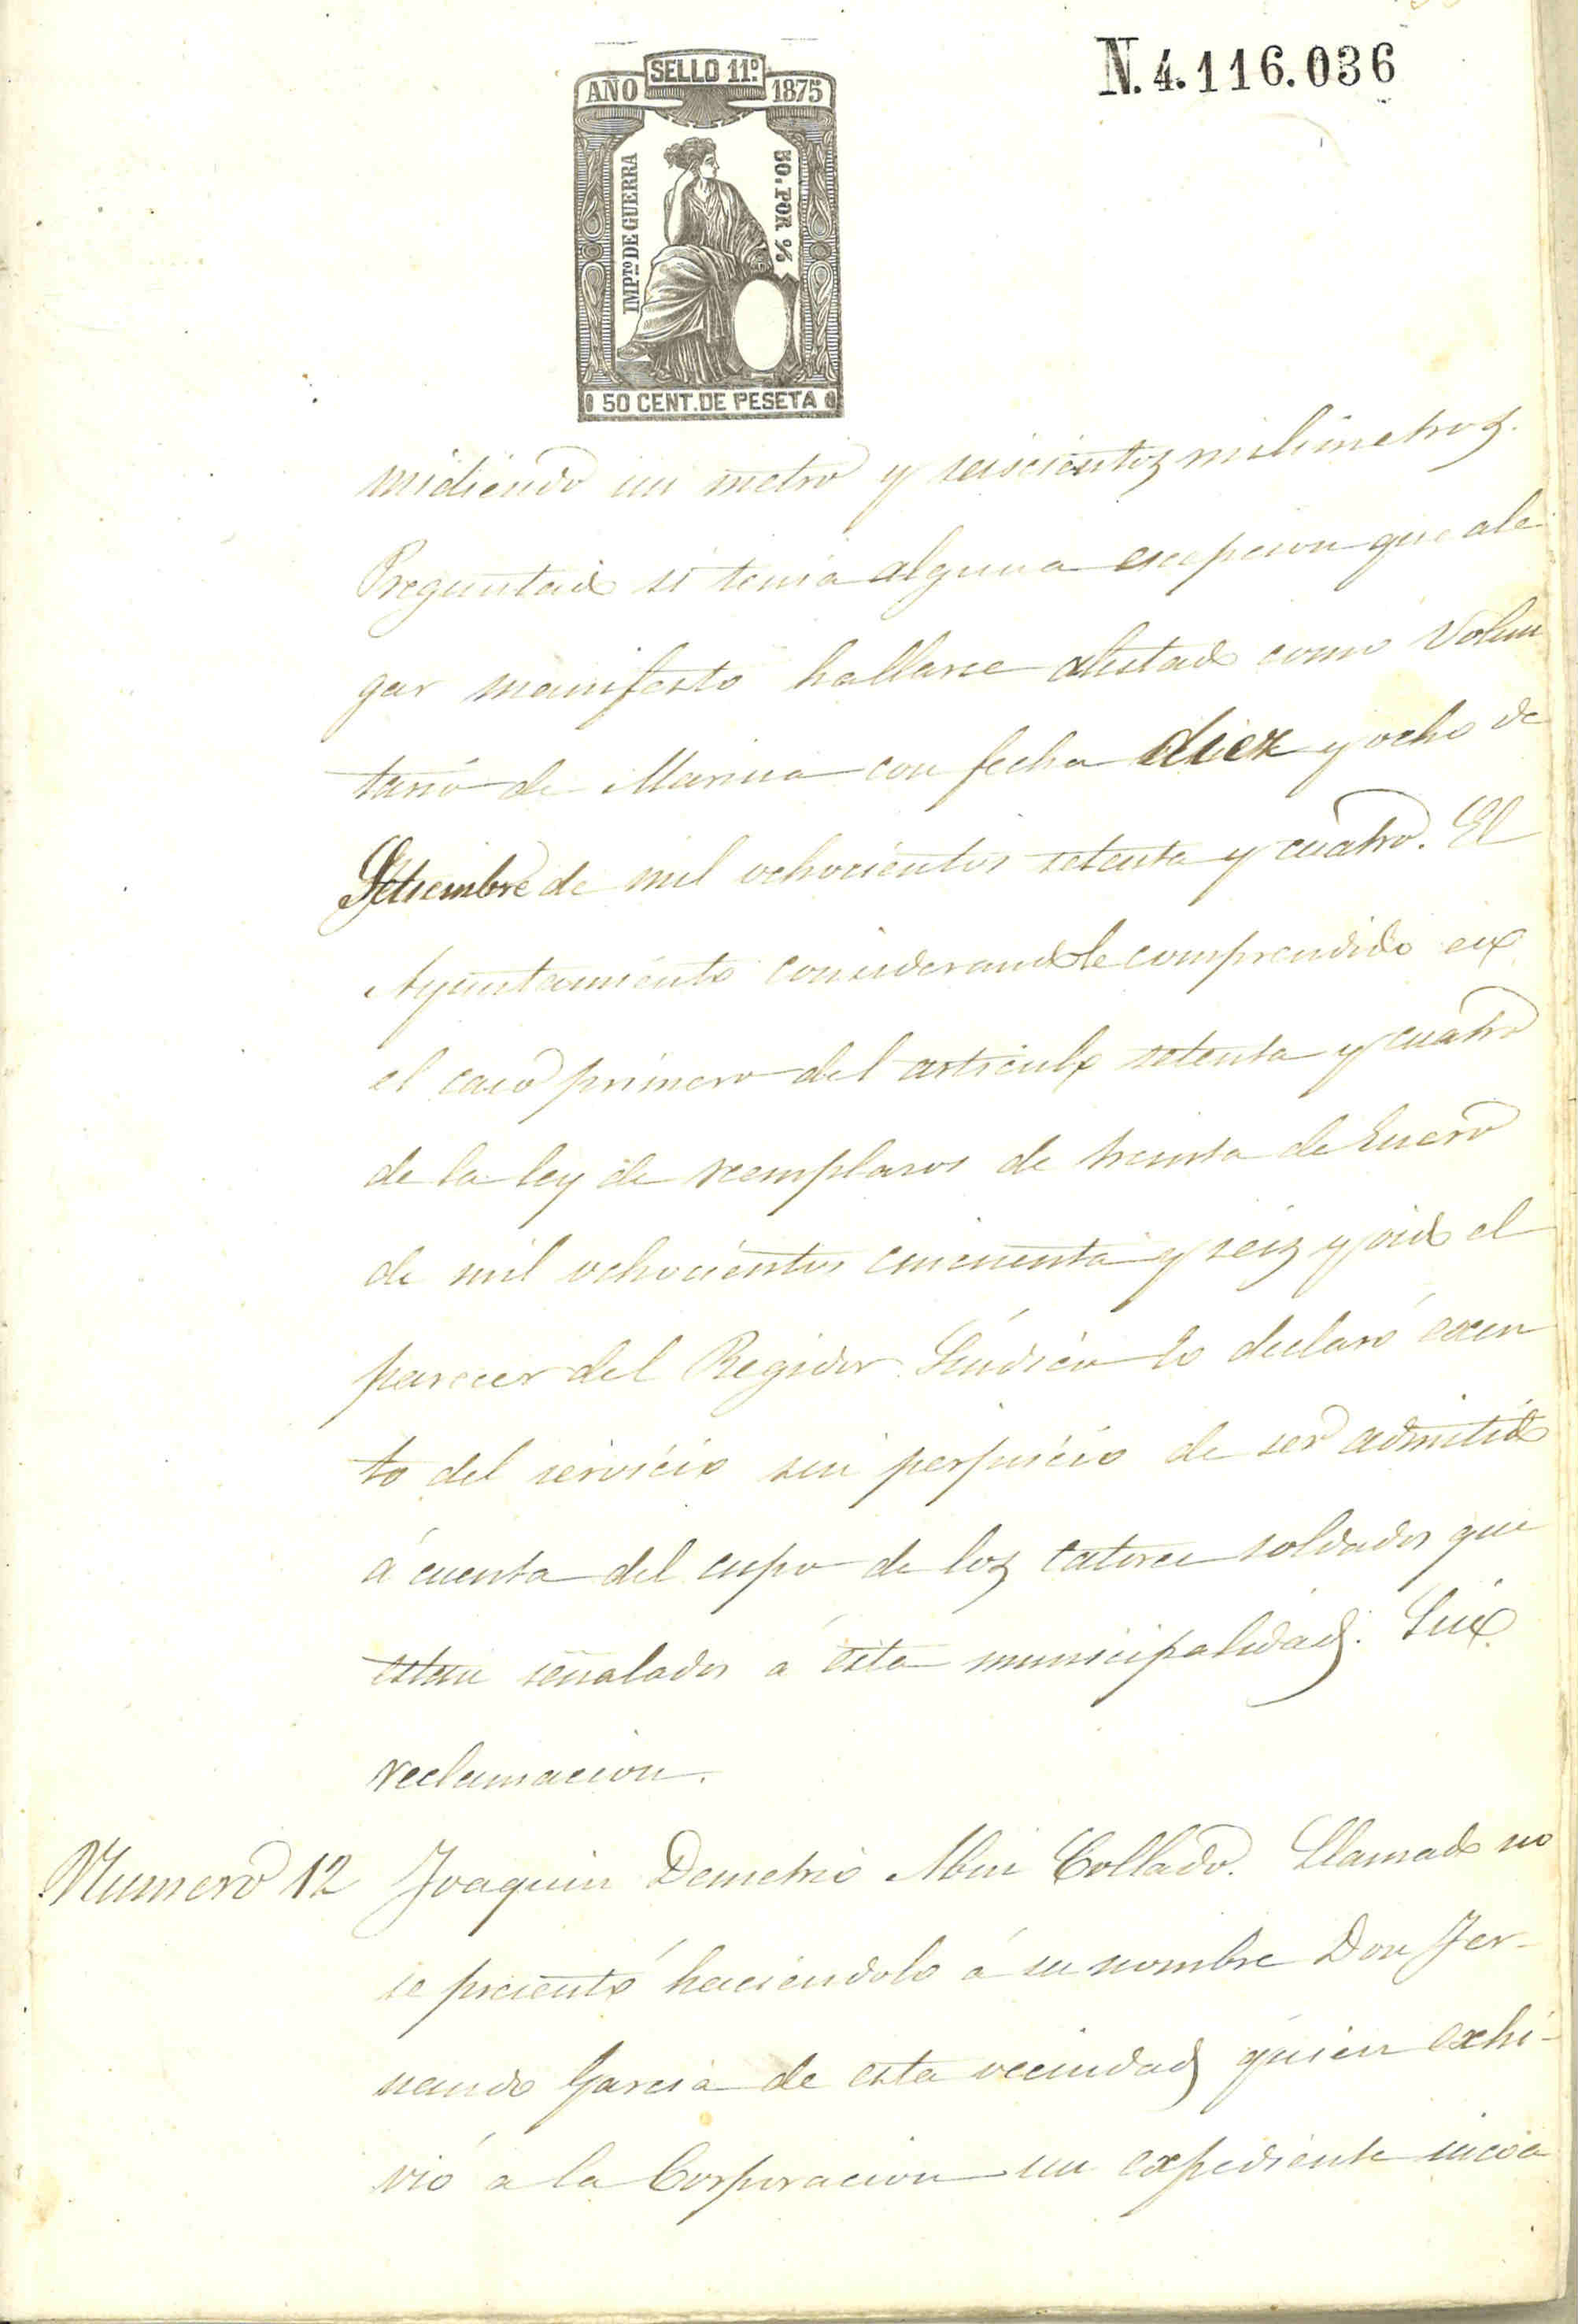 N. 4.116.036
SELLO 11º
AÑO 1875
IMPTO DE GUERRA
50. POR %
50 CENT. DE PESETA
midiendo un metro y seiscientos milimetros.
Preguntado si tenia alguna escepcion que ale
gar manifesto hallarse alistado como Volun
tario de Marina con fecha diez y ocho de
Setiembre de mil ochocientos setenta y cuatro. El
Ayuntamiento considerandole comprendido en
el caso primero del articulo setenta y cuatro
de la ley de reemplazos de treinta de Enero
de mil ochocientos cincuenta y seis y oido el
parecer del Regidor Sindico lo declaró exen
to del servicio sin perjuicio de ser admitido
á cuenta del cupo de los catorce soldados que
estan señalados á esta municipalidad. Sin
reclamacion.
Numero 12 Joaquin Demetrio Collado. Llamado no
se presentó haciendolo á su nombre Don Fer-
nando Garcia de esta vecindad quien exhi-
vió a la Corporacion un expediente incoa